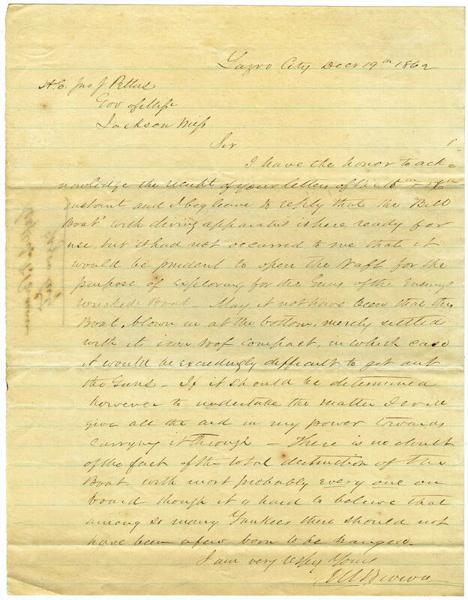 Yazoo City Decr 19th 1862
H. E. Jno J Pettus
Gov of Miss
Jackson Miss
Sir
I have the honor to ack-
nowledge the receipt of your letters of the
instant and I beg leave to reply that the Bell
Boat with diving apparatus is here ready for
use but it had not occurred to me that it
would be prudent to open the Raft for the
purpose of exploring for the Guns of the Enemys
wrecked Boat - May it not have been that the
Boat, blown in at the bottom, merely settled
with its iron roof compact, in which case
it would be exceedingly difficult to get out
the Guns - If it should be determined
however to undertake the matter I will
give all the aid in my power towards
carrying it through - There is no doubt
of the fact of the total destruction of the
Boat with most probably every one on
board though it is hard to believe that
among so many Yankees there should not
have been a few born to be hanged.
I am very respy Yours